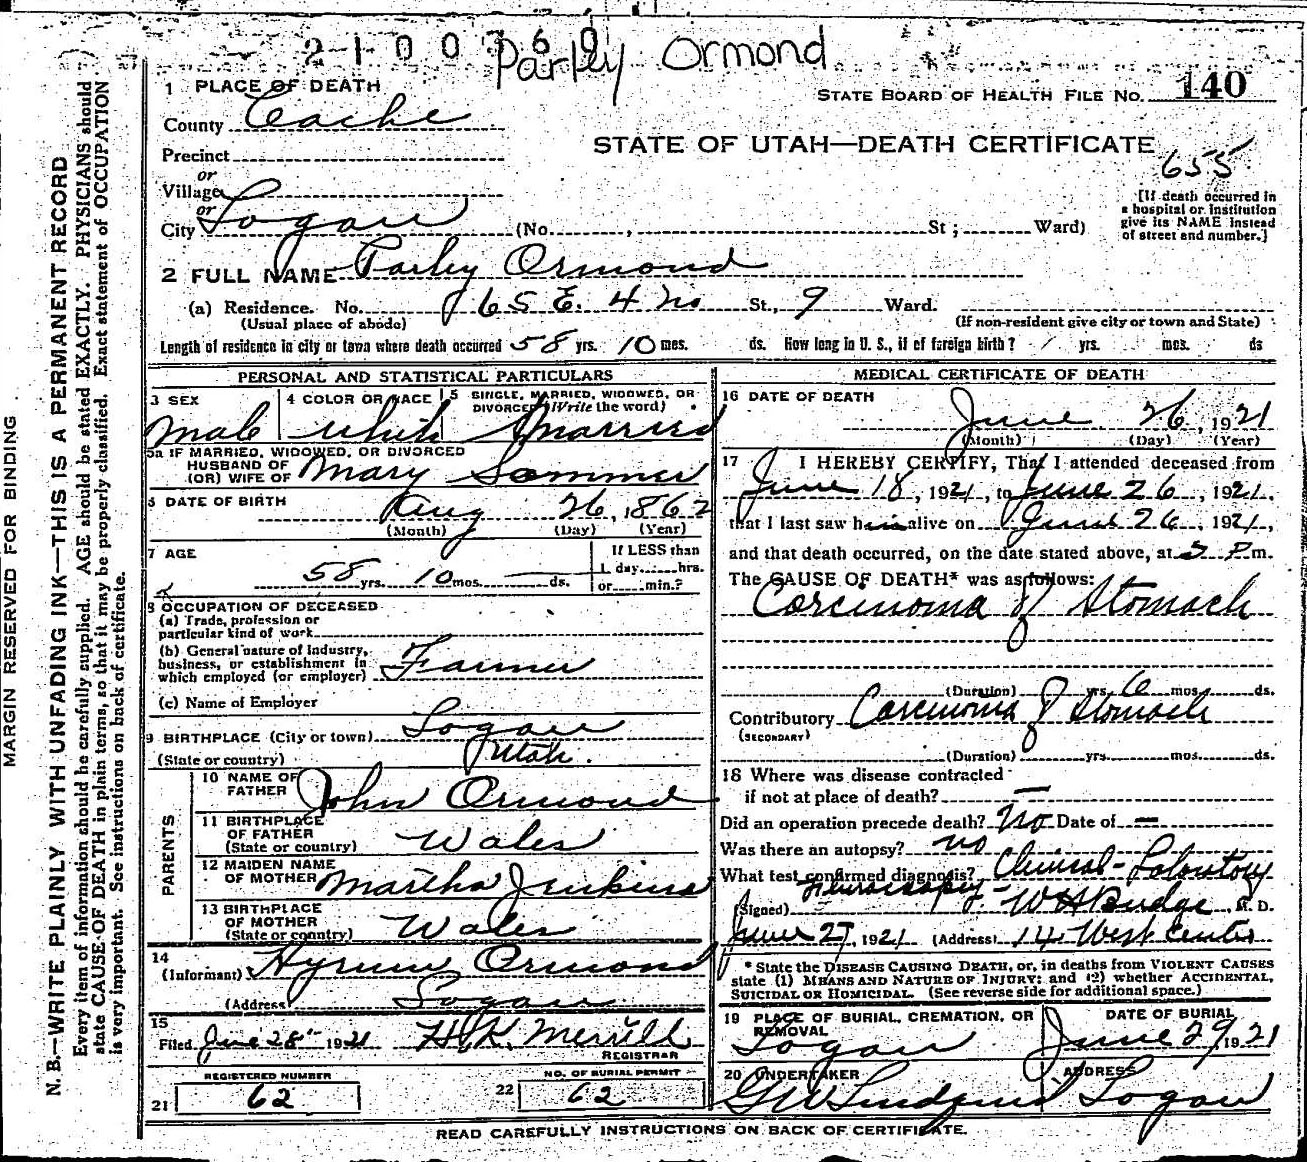 2 1 0 0 7 6 0
Parley Ormond
1 PLACE OF DEATH
STATE BOARD OF HEALTH FILE NO. 140
County Cache
STATE OF UTAH—DEATH CERTIFICATE
655
Precinct
or
Village
or
City Logan (No. , St ; Ward)
[If death occurred in
a hospital or institution
give its NAME instead
of street and number.]
2 FULL NAME Parley Ormond
(a) Residence. No. 65 E. 4 No St., 9 Ward.
(Usual place of abode) (If non-resident give city or town and State)
Length of residence in city or town where death occurred 58 yrs. 10 mos. ds. How long in U. S., if of foreign birth? yrs. mos. ds
PERSONAL AND STATISTICAL PARTICULARS
3 SEX 4 COLOR OR RACE 5 SINGLE, MARRIED, WIDOWED, OR
DIVORCED (Write the word)
Male White Married
5a IF MARRIED, WIDOWED, OR DIVORCED
HUSBAND OF
(OR) WIFE OF Mary Sommer
6 DATE OF BIRTH Aug 26, 1862
(Month) (Day) (Year)
7 AGE 58 yrs. 10 mos. ds.
If LESS than
1 day hrs.
or min.?
8 OCCUPATION OF DECEASED
(a) Trade, profession or
particular kind of work
(b) General nature of industry,
business, or establishment in
which employed (or employer) Farmer
(c) Name of Employer
9 BIRTHPLACE (City or town) Logan
(State or country) Utah.
PARENTS
10 NAME OF
FATHER John Ormond
11 BIRTHPLACE
OF FATHER
(State or country) Wales
12 MAIDEN NAME
OF MOTHER Martha Jenkins
13 BIRTHPLACE
OF MOTHER
(State or country) Wales
14
(Informant) Hyrum Ormond
(Address) Logan
15
Filed June 28" 1921 H. K. Merrill
REGISTRAR
REGISTERED NUMBER
21 62
NO. OF BURIAL PERMIT
22 62
MEDICAL CERTIFICATE OF DEATH
16 DATE OF DEATH
June 26, 1921
(Month) (Day) (Year)
17 I HEREBY CERTIFY, That I attended deceased from
June 18, 1921, to June 26, 1921,
that I last saw him alive on June 26, 1921,
and that death occurred, on the date stated above, at 5 P.m.
The CAUSE OF DEATH* was as follows:
Carcinoma of Stomach
(Duration) yrs. 6 mos. ds.
Contributory Carcinoma of Stomach
(SECONDARY)
(Duration) yrs. mos. ds.
18 Where was disease contracted
if not at place of death? —
Did an operation precede death? No Date of —
Was there an autopsy? no
What test confirmed diagnosis? Clinical - Laboratory
(Signed) W H Budge, M. D.
June 27, 1921 (Address) 14 West Center
* State the DISEASE CAUSING DEATH, or, in deaths from VIOLENT CAUSES
state (1) MEANS AND NATURE OF INJURY; and (2) whether ACCIDENTAL,
SUICIDAL OR HOMICIDAL. (See reverse side for additional space.)
19 PLACE OF BURIAL, CREMATION, OR
REMOVAL
Logan
DATE OF BURIAL
June 29, 1921
20 UNDERTAKER
ADDRESS
Logan
READ CAREFULLY INSTRUCTIONS ON BACK OF CERTIFICATE.
MARGIN RESERVED FOR BINDING
N. B.—WRITE PLAINLY WITH UNFADING INK—THIS IS A PERMANENT RECORD
Every item of information should be carefully supplied. AGE should be stated EXACTLY. PHYSICIANS should
state CAUSE OF DEATH in plain terms, so that it may be properly classified. Exact statement of OCCUPATION
is very important. See instructions on back of certificate.